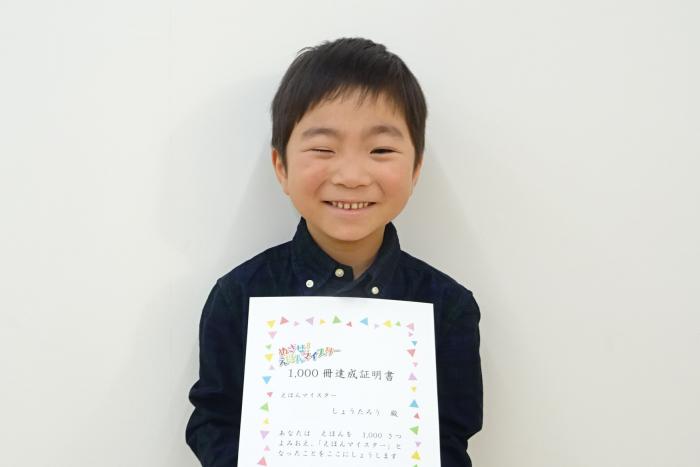 めざせ!!
えほんマイスター
1,000 冊達成証明書
えほんマイスター
しょうたろう 殿
あなたは えほんを 1,000 さつ
よみおえ、「えほんマイスター」と
なったことをここにしょうします